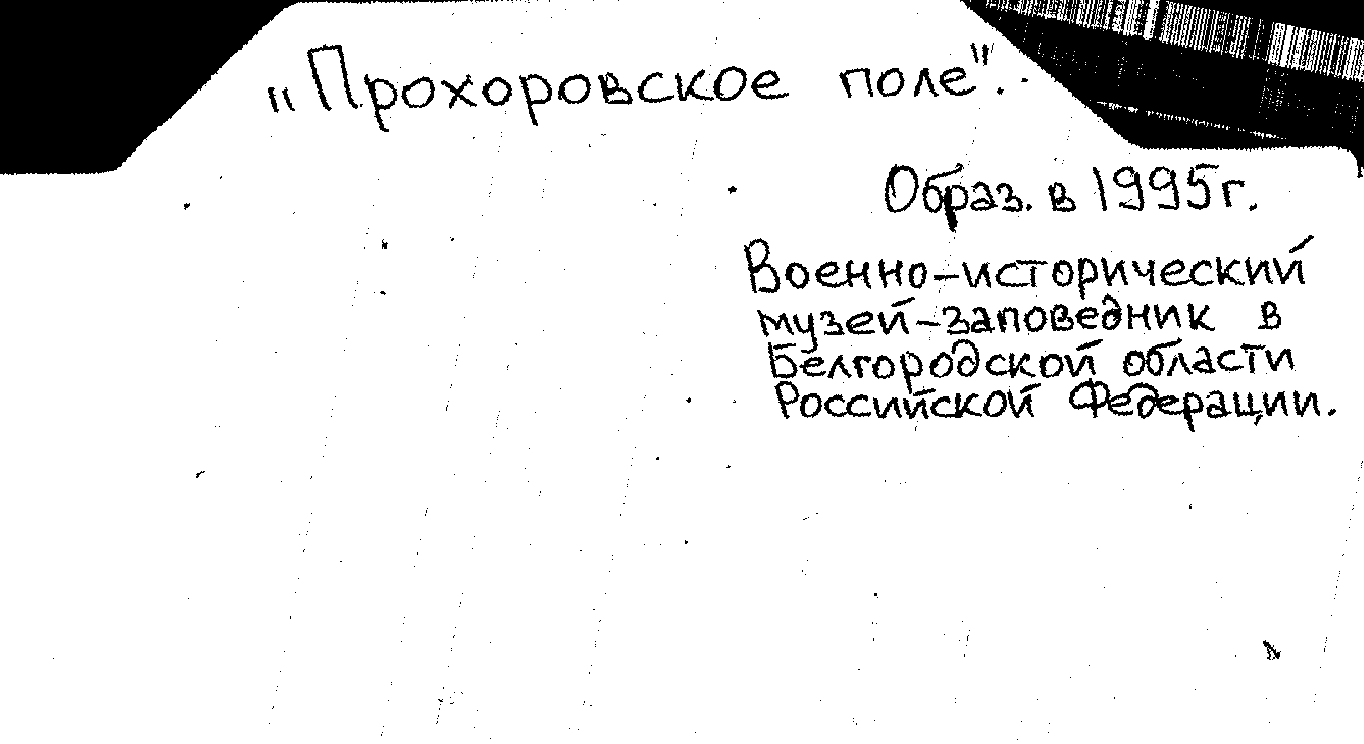 "Прохоровское поле".
Образ. в 1995г.
Военно-исторический
музей-заповедник в
Белгородской области
Российской Федерации.